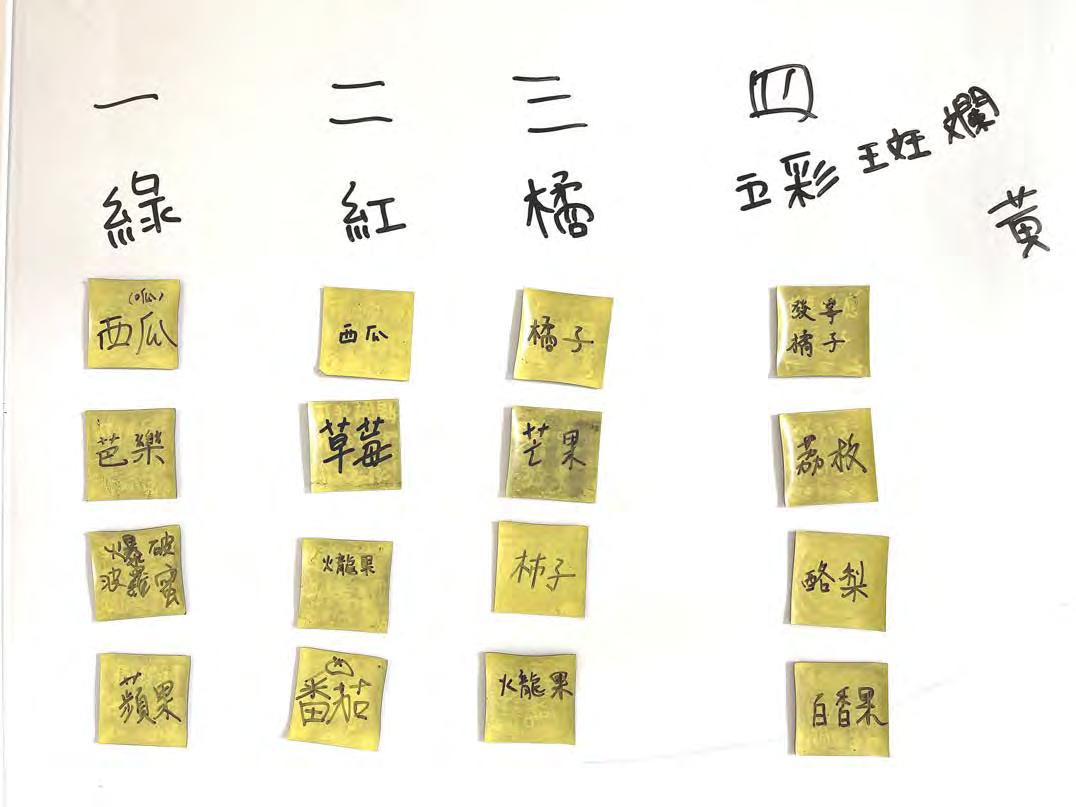 一
綠
(呱)
西瓜
芭樂
爆破
波羅蜜
蘋果
二
紅
西瓜
草莓
火龍果
番茄
三
橘
橘子
芒果
柿子
火龍果
四
彩
黃
橘子
荔枝
酪梨
百香果